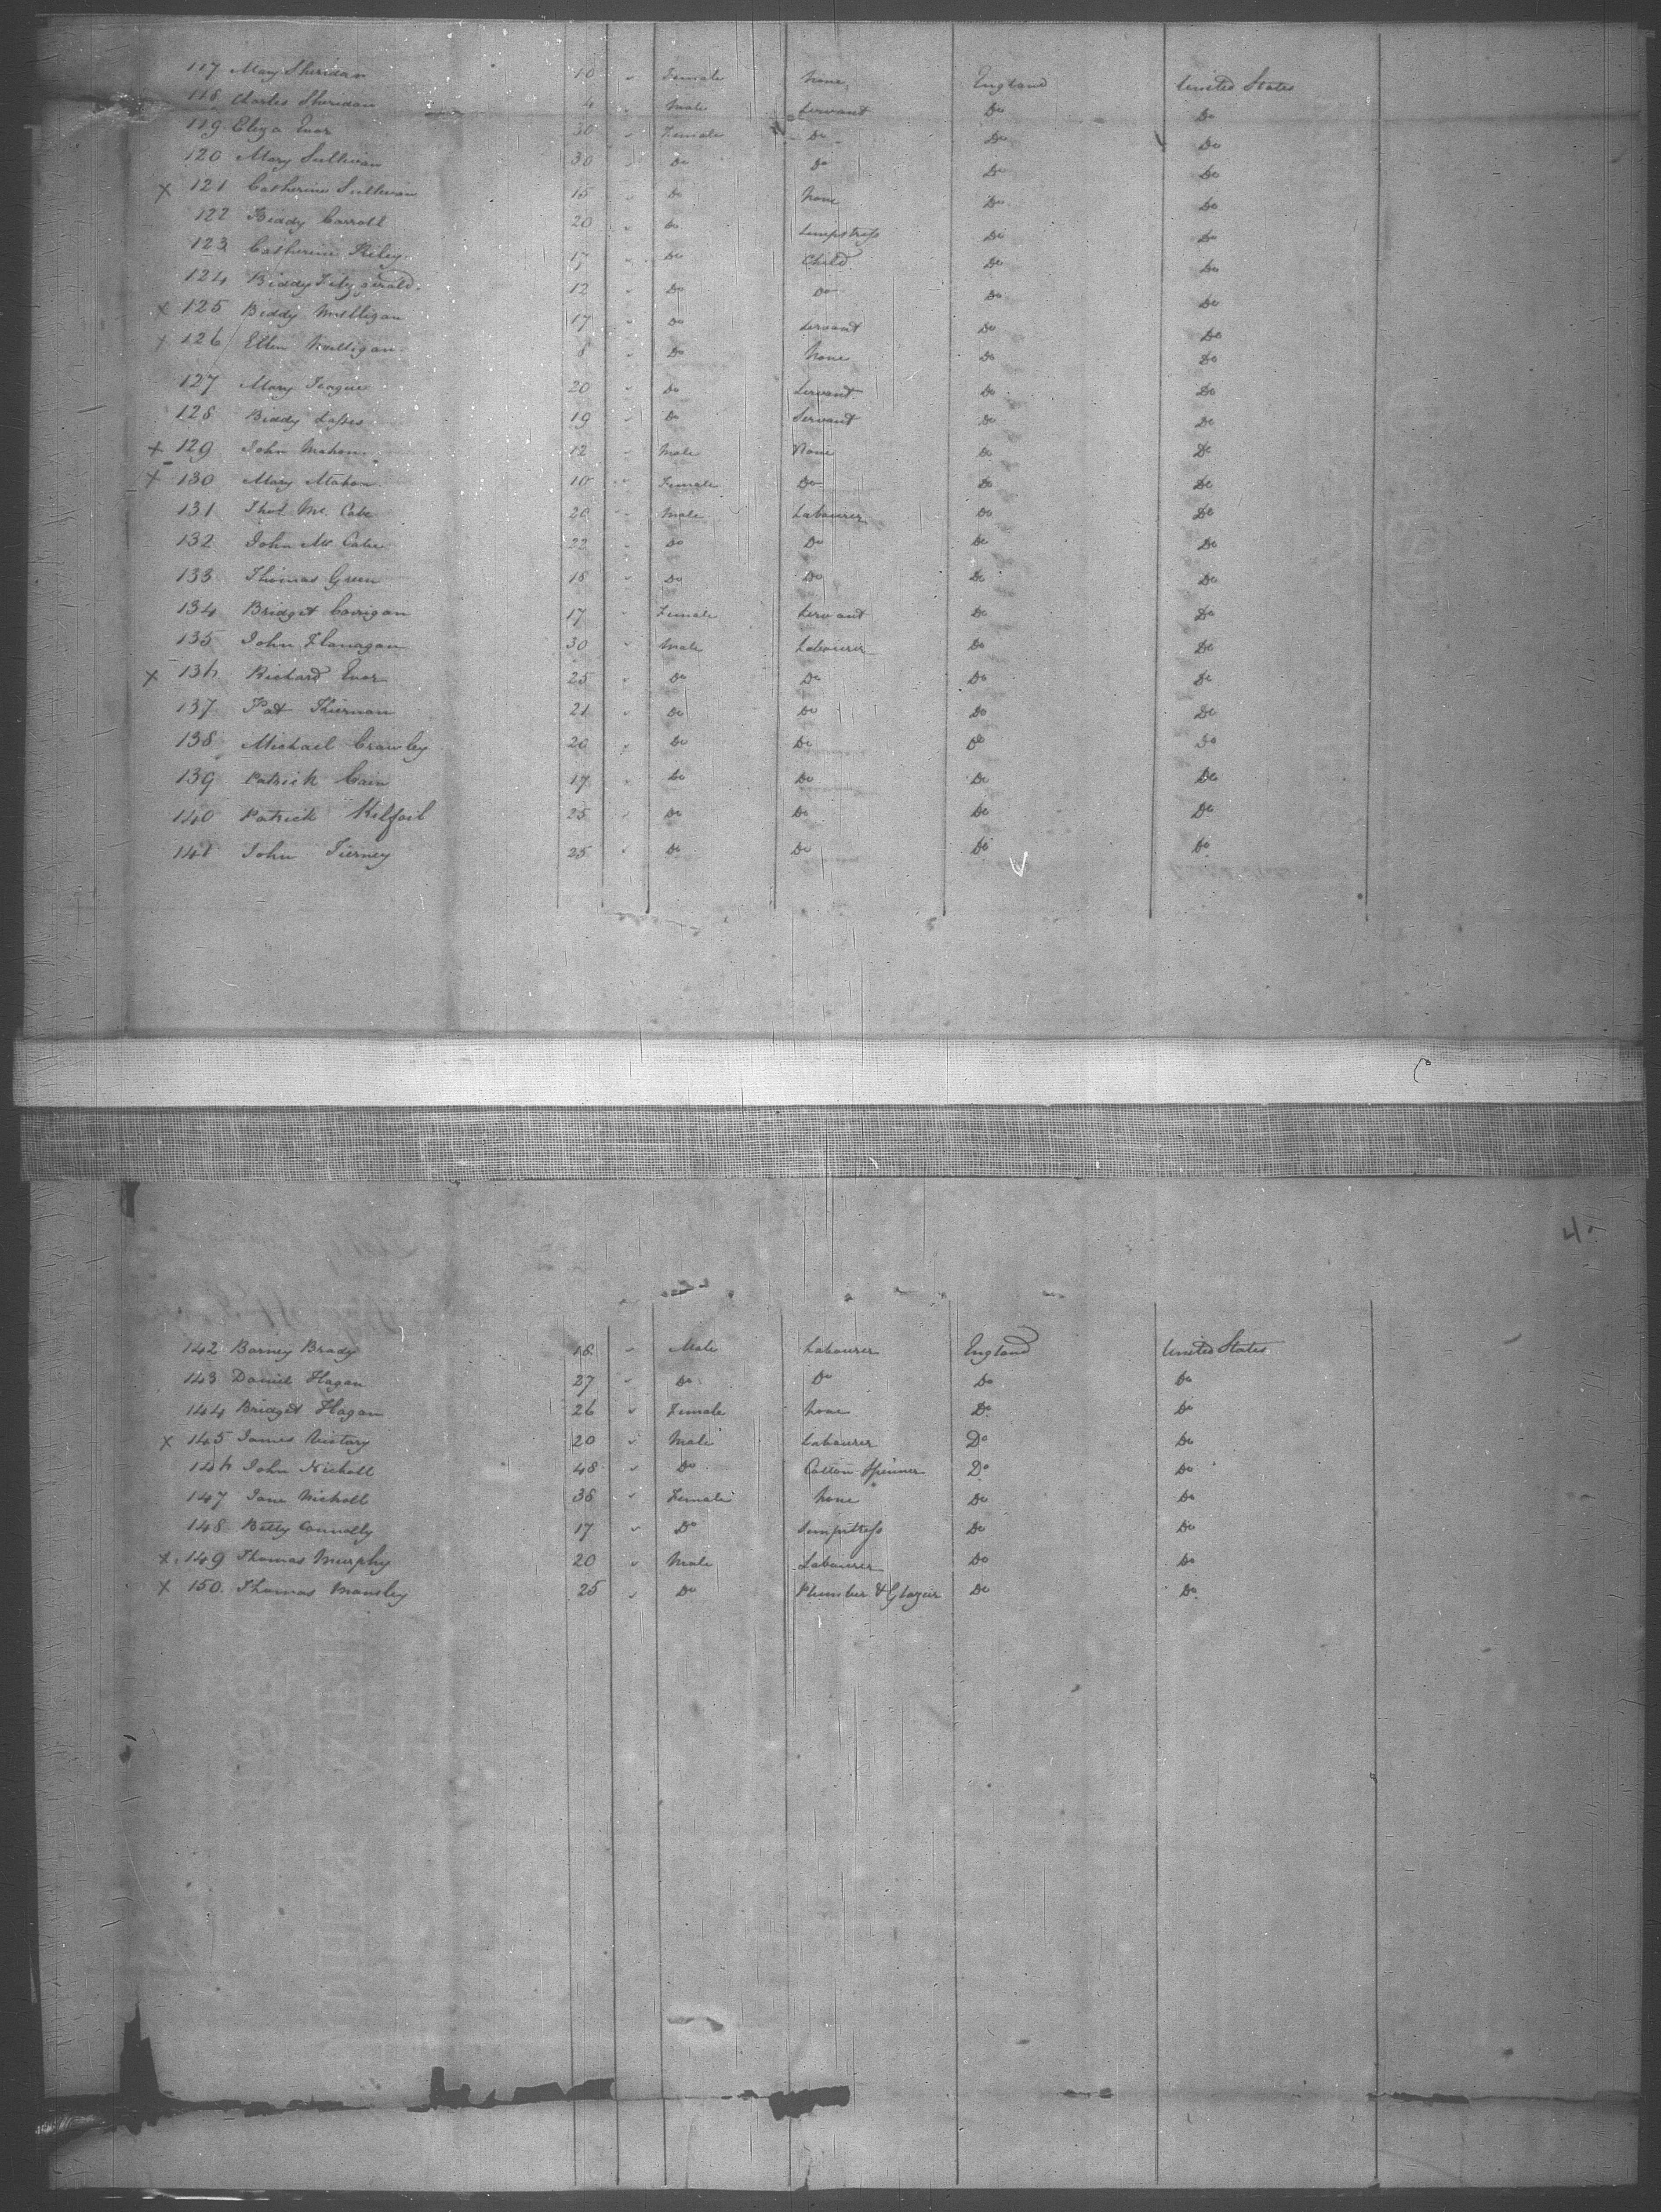 117 Mary Sheridan 10 " Female None England United States
118 Charles Sheridan 4 " Male Servant Do Do
119 Eliza Ivor 30 " Female Do Do Do
120 Mary Sullivan 30 " Do Do Do Do
x 121 Catherine Sullivan 15 " Do None Do Do
122 Biddy Carroll 20 " Do Sempstress Do Do
123 Catherine Riley 17 " Do Child Do Do
124 Biddy Fitzgerald 12 " Do Do Do Do
x 125 Biddy Mulligan 17 " Do Servant Do Do
x 126 Ellen Mulligan 8 " Do None Do Do
127 Mary Teague 20 " Do Servant Do Do
128 Biddy 19 " Do Servant Do Do
x 129 John Mahon 12 " Male None Do Do
x 130 Mary Mahon 10 " Female Do Do Do
131 Thos Mc Cabe 20 " Male Labourer Do Do
132 John Mc Cabe 22 " Do Do Do Do
133 Thomas Green 18 " Do Do Do Do
134 Bridget Corrigan 17 " Female Servant Do Do
135 John Flanagan 30 " Male Labourer Do Do
x 136 Richard Ivor 25 " Do Do Do Do
137 Pat Kiernan 21 " Do Do Do Do
138 Michael Crawley 20 " Do Do Do Do
139 Patrick Cain 17 " Do Do Do Do
140 Patrick Kilfoil 25 " Do Do Do Do
141 John Tierney 25 " Do Do Do Do
4
142 Barney Brady 18 " Male Labourer England United States
143 Daniel Hagan 27 " Do Do Do Do
144 Bridget Hagan 26 " Female None Do Do
x 145 James 20 " Male Labourer Do Do
146 John Nicholl 48 " Do Cotton Spinner Do Do
147 Jane Nicholl 38 " Female None Do Do
148 Betty Connolly 17 " Do Sempstress Do Do
x 149 Thomas Murphy 20 " Male Labourer Do Do
x 150 Thomas Mansley 25 " Do Plumber & Glazier Do Do